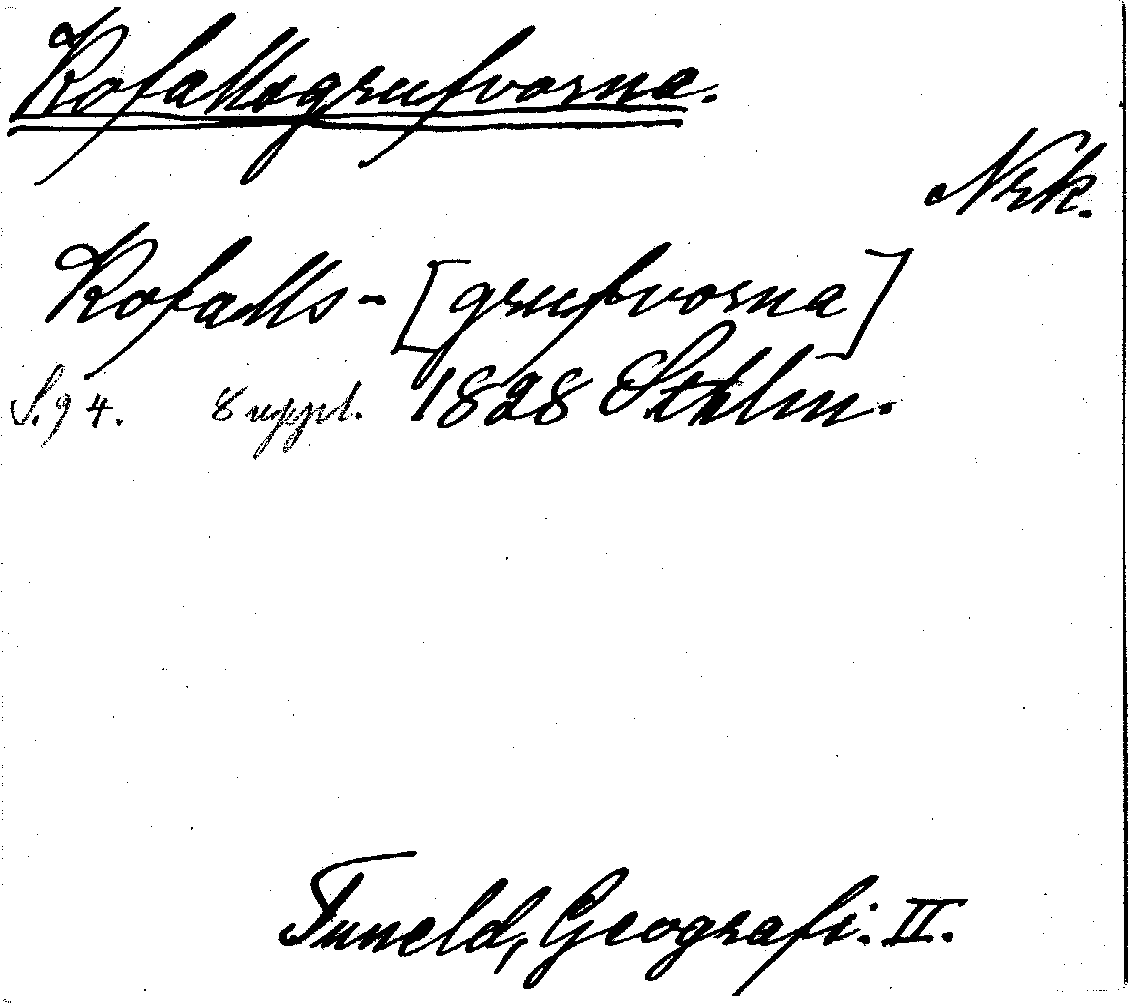 Kofallsgrufvorna.
Nrk.
Kofalls-[grufvorna]
S.94. 8 uppl. 1828 Sthlm.
Tuneld, Geografi. II.